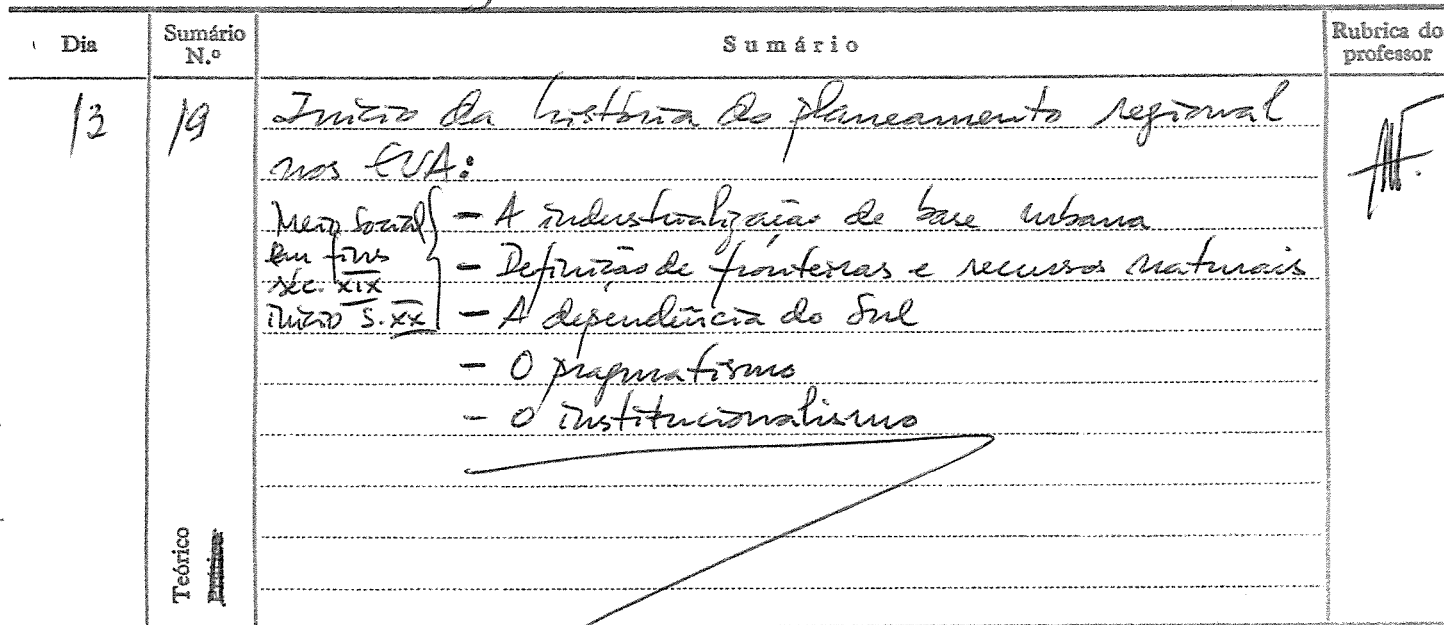 Dia Sumário N.º Sumário Rubrica do professor
13 19 Início da história do planeamento regional
nos EUA:
Meio Social - A industrialização de base urbana
em fins - Definição de fronteiras e recursos naturais
séc. XIX
início S. XX - A dependência do Sul
- O pragmatismo
- O institucionalismo
Teórico